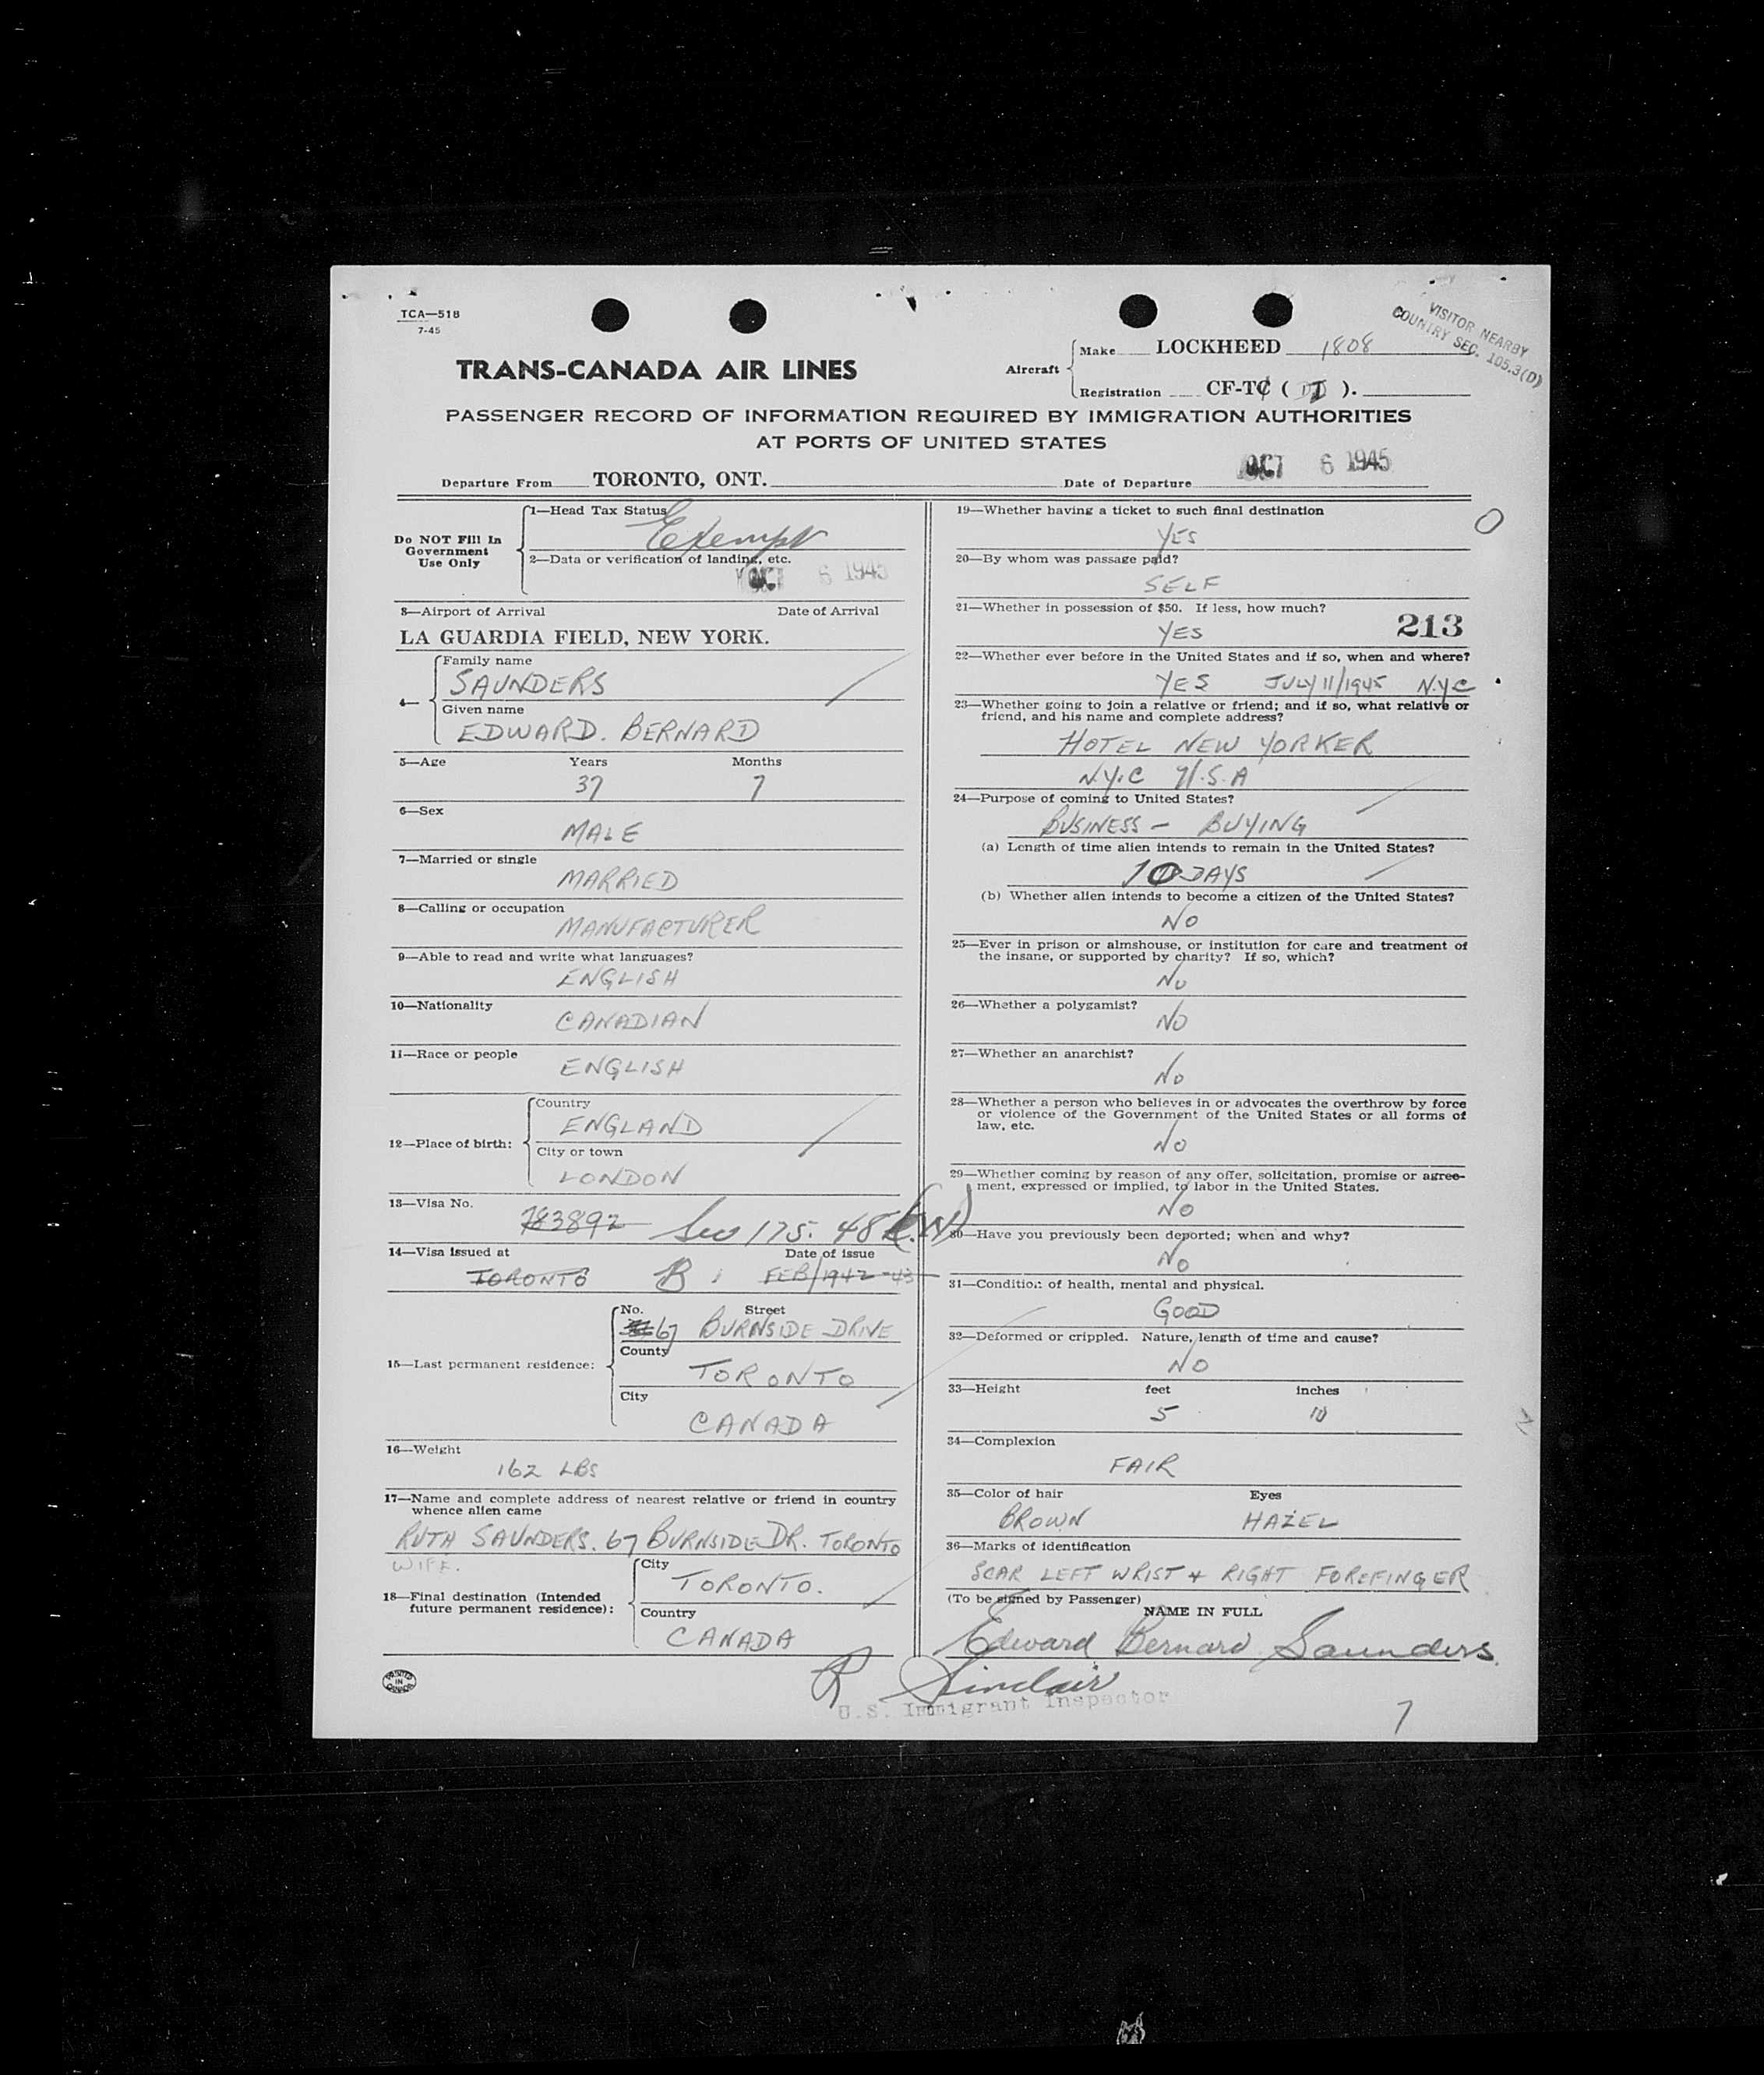 TCA—518
7-45
VISITOR NEARBY
COUNTRY SEC. 105.3(D)
TRANS-CANADA AIR LINES
Aircraft
Make LOCKHEED 1808
Registration CF-TC ( ).
PASSENGER RECORD OF INFORMATION REQUIRED BY IMMIGRATION AUTHORITIES
AT PORTS OF UNITED STATES
Departure From TORONTO, ONT. Date of Departure OCT 6 1945
Do NOT Fill In
Government
Use Only
1—Head Tax Status
Exempt
2—Data or verification of landing, etc.
OCT 6 1945
3—Airport of Arrival Date of Arrival
LA GUARDIA FIELD, NEW YORK.
4—
Family name
SAUNDERS
Given name
EDWARD. BERNARD
5—Age Years Months
37 7
6—Sex
MALE
7—Married or single
MARRIED
8—Calling or occupation
MANUFACTURER
9—Able to read and write what languages?
ENGLISH
10—Nationality
CANADIAN
11—Race or people
ENGLISH
12—Place of birth:
Country
ENGLAND
City or town
LONDON
13—Visa No.
783892 Sec 175.48
14—Visa issued at Date of issue
TORONTO B FEB/1942-43
15—Last permanent residence:
No. Street
67 BURNSIDE DRIVE
County
TORONTO
City
CANADA
16—Weight
162 LBS
17—Name and complete address of nearest relative or friend in country
whence alien came
RUTH SAUNDERS. 67 BURNSIDE DR. TORONTO
WIFE.
18—Final destination (Intended
future permanent residence):
City
TORONTO.
Country
CANADA
PRINTED
IN
CANADA
19—Whether having a ticket to such final destination
YES
O
20—By whom was passage paid?
SELF
21—Whether in possession of $50. If less, how much?
YES
213
22—Whether ever before in the United States and if so, when and where?
YES JULY 11/1945 N.Y.C
23—Whether going to join a relative or friend; and if so, what relative or
friend, and his name and complete address?
HOTEL NEW YORKER
N.Y.C U.S.A
24—Purpose of coming to United States?
BUSINESS — BUYING
(a) Length of time alien intends to remain in the United States?
10 DAYS
(b) Whether alien intends to become a citizen of the United States?
NO
25—Ever in prison or almshouse, or institution for care and treatment of
the insane, or supported by charity? If so, which?
NO
26—Whether a polygamist?
NO
27—Whether an anarchist?
NO
28—Whether a person who believes in or advocates the overthrow by force
or violence of the Government of the United States or all forms of
law, etc.
NO
29—Whether coming by reason of any offer, solicitation, promise or agree-
ment, expressed or implied, to labor in the United States.
NO
30—Have you previously been deported; when and why?
NO
31—Condition of health, mental and physical.
GOOD
32—Deformed or crippled. Nature, length of time and cause?
NO
33—Height feet inches
5 10
34—Complexion
FAIR
35—Color of hair Eyes
BROWN HAZEL
36—Marks of identification
SCAR LEFT WRIST + RIGHT FOREFINGER
(To be signed by Passenger)
NAME IN FULL
Edward Bernard Saunders.
R Sinclair
U.S. Immigrant Inspector
7